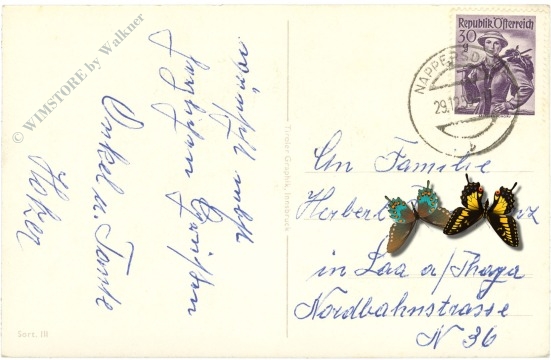 wünscht mit
herzlichen Grüßen
Onkel u. Tante
© WIMSTORE by Walkner
Sort. III
Tiroler Graphik, Innsbruck
Republik Österreich
30 g
NAPPERSDORF
29.12
An Familie
Herbert
in Laa a/Thaya
Nordbahnstrasse
N 36